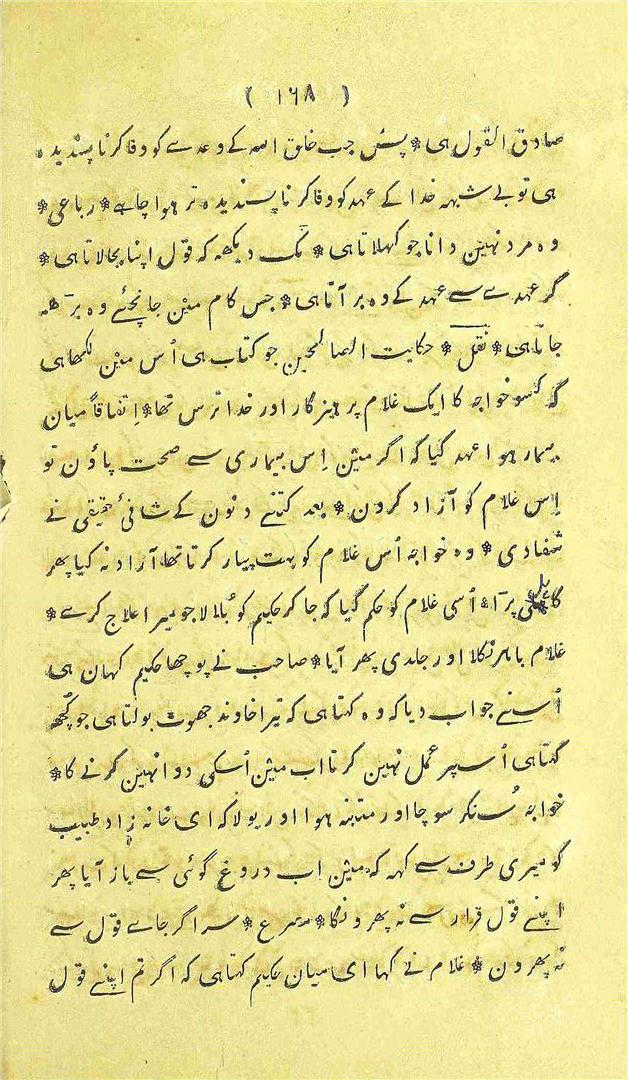 ( ۱۶۸ )
صادق القول ہی * پس جب خلق اللہ کے وعدے کو وفا کرنا پسندیدہ
ہی تو بے شبہہ خدا کے عہد کو وفا کرنا پسندیدہ تر ہوا چاہے * رباعی *
وہ مرد نہین دانا جو کہلاتا ہی * ٹک دیکھہ کہ قول اپنا بجالاتا ہی *
گر عہدے سے عہد کے وہ بر آتا ہی * جس کام مین جانچئے وہ بڑھہ
جاتا ہی * نقل * حکایت الصالحین جو کتاب ہی اُس مین لکھا ہی
کہ کسو خواجہ کا ایک غلام پرہیزگار اور خدا ترس تھا * اِتفاقاً میان
بیمار ہوا عہد کیا کہ اگر مین اِس بیماری سے صحت پاؤن تو
اِس غلام کو آزاد کرون * بعد کتنے دنون کے شافیٔ حقیقی نے
شفا دی * وہ خواجہ اُس غلام کو بہت پیار کرتا تھا آزاد نہ کیا پھر
پڑا * اُسی غلام کو حکم کیا کہ جا کر حکیم کو بُلا لا جو میرا علاج کرے *
غلام باہر نکلا اور جلدی پھر آیا * صاحب نے پوچھا حکیم کہان ہی
اُسنے جواب دیا کہ وہ کہتا ہی کہ تیرا خاوند جھوٹ بولتا ہی جو کُچھ
کہتا ہی اُسپر عمل نہین کرتا اب مین اُسکی دوا نہین کرنے کا *
خواجہ سُنکر سوچا اور متنبہ ہوا اور بولا کہ ای خانہ زاد طبیب
کو میری طرف سے کہہ کہ مین اب دروغ گوئی سے باز آیا پھر
اپنے قول قرار سے نہ پھرونگا * مصرع * سر اگر جاے قول سے
نہ پھرون * غلام نے کہا ای میان حکیم کہتا ہی کہ اگر تم اپنے قول